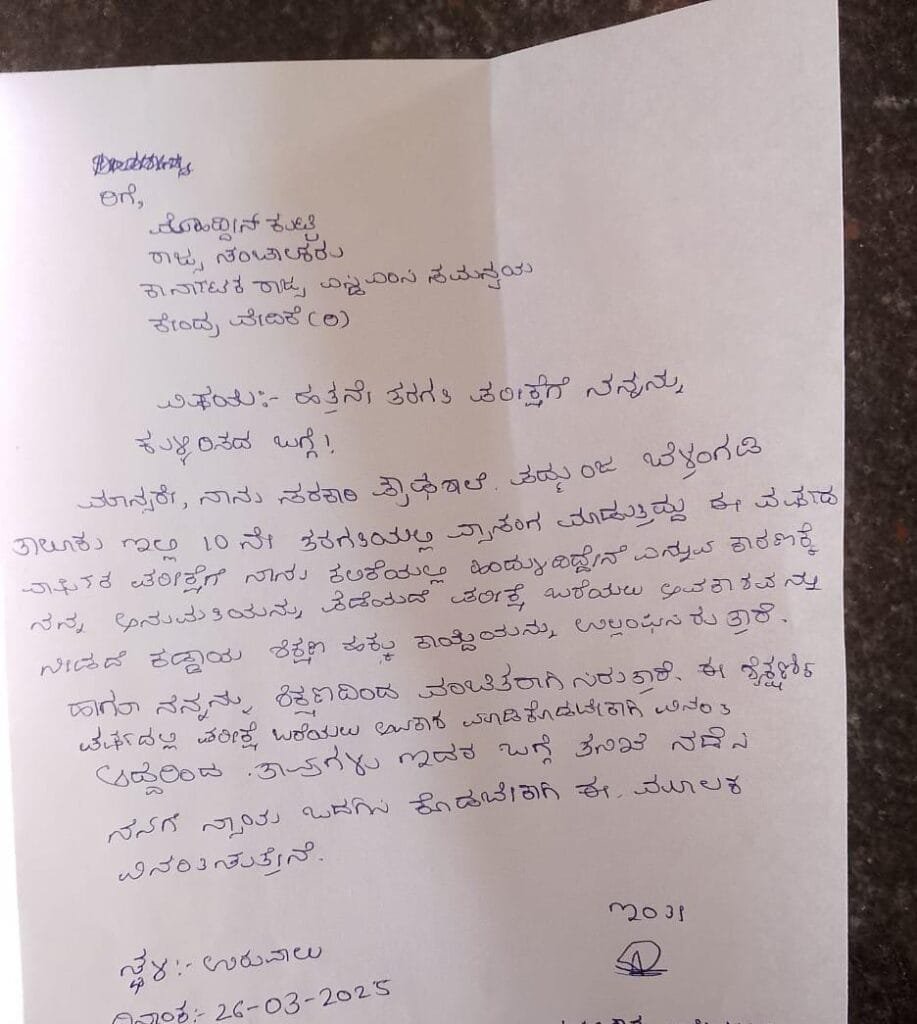 ರಿಗೆ,
ಮೊಹಿದ್ದೀನ್ ಕುಟ್ಟಿ
ರಾಜ್ಯ ಸಂಚಾಲಕರು
ಕಾರ್ನಾಟಕ ರಾಜ್ಯ ಎಸ್ಡಿಎಂಸಿ ಸಮನ್ವಯ
ಕೇಂದ್ರ ವೇದಿಕೆ (ರಿ)
ವಿಷಯ:- ಹತ್ತನೇ ತರಗತಿ ಪರೀಕ್ಷೆಗೆ ನನ್ನನ್ನು
ಕುಳ್ಳಿರಿಸದ ಬಗ್ಗೆ!
ಮಾನ್ಯರೇ, ನಾನು ಸರಕಾರಿ ಪ್ರೌಢಶಾಲೆ. ಪದ್ಮುಂಜ ಬೆಳ್ತಂಗಡಿ
ತಾಲೂಕು ಇಲ್ಲಿ 10 ನೇ ತರಗತಿಯಲ್ಲಿ ವ್ಯಾಸಂಗ ಮಾಡುತ್ತಿದ್ದು ಈ ವರ್ಷದ
ವಾರ್ಷಿಕ ಪರೀಕ್ಷೆಗೆ ನಾನು ಕಲಿಕೆಯಲ್ಲಿ ಹಿಂದ್ಯುಳಿದಿದ್ದೇನೆ ಎನ್ನುವ ಕಾರಣಕ್ಕೆ
ನನ್ನ ಅನುಮತಿಯನ್ನು ಪಡೆಯದೆ ಪರೀಕ್ಷೆ ಬರೆಯಲು ಅವಕಾಶವನ್ನು
ನೀಡದೆ ಕಡ್ಡಾಯ ಶಿಕ್ಷಣ ಹಕ್ಕು ಕಾಯ್ದೆಯನ್ನು ಉಲ್ಲಂಘಿಸಿರುತ್ತಾರೆ.
ಹಾಗೂ ನನ್ನನ್ನು ಶಿಕ್ಷಣದಿಂದ ವಂಚಿತರಾಗಿಸಿರುತ್ತಾರೆ. ಈ ಶೈಕ್ಷಣಿಕ
ವರ್ಷದಲ್ಲಿ ಪರೀಕ್ಷೆ ಬರೆಯಲು ಅವಕಾಶ ಮಾಡಿಕೊಡಬೇಕಾಗಿ ವಿನಂತಿ
ಆದ್ದರಿಂದ. ತಾವುಗಳು ಇದರ ಬಗ್ಗೆ ತನಿಖೆ ನಡೆಸಿ
ನನಗೆ ನ್ಯಾಯ ಒದಗಿಸಿ ಕೊಡಬೇಕಾಗಿ ಈ. ಮೂಲಕ
ವಿನಂತಿಸುತ್ತೇನೆ.
ಇಂತಿ
ಸ್ಥಳ:- ಉರುವಾಲು
ದಿನಾಂಕ:- 26-03-2025